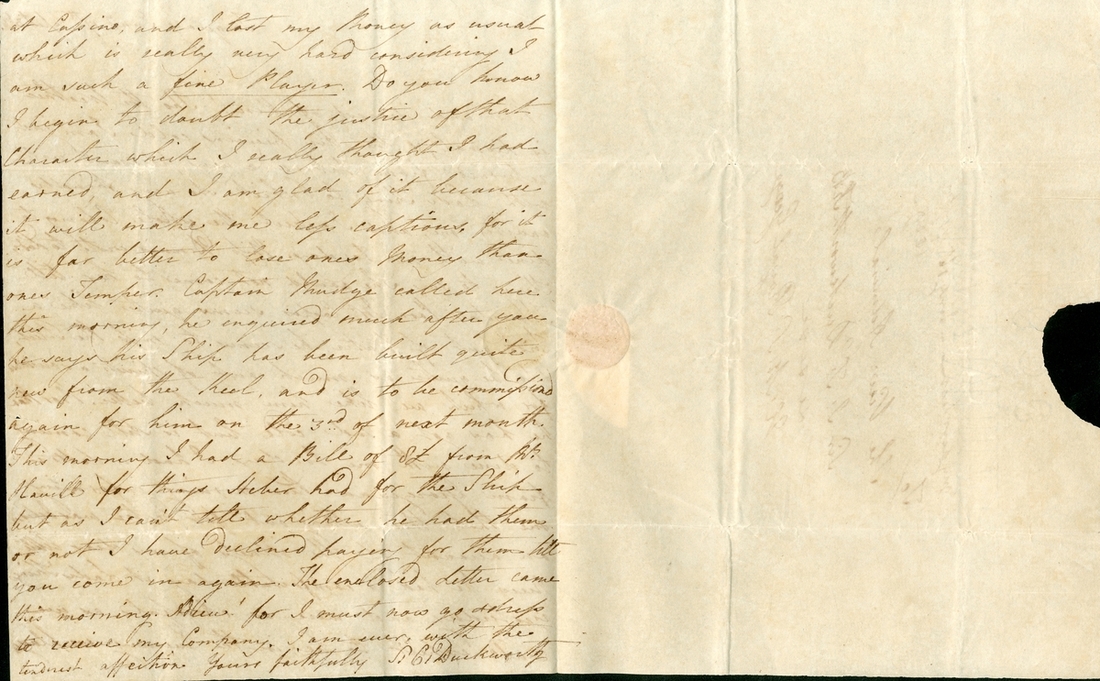 at Cassino, and I lost my Money as usual
which is really very hard considering I
am such a fine Player. Do you know
I begin to doubt the justice of that
Character which I really thought I had
earned, and I am glad of it because
it will make me less captious, for it
is far better to lose ones Money than
ones Temper. Captain Mudge called here
this morning, he enquired much after you
he says his Ship has been built quite
new from the Keel, and is to be commissiond
again for him on the 3rd of next month.
This morning I had a Bill of 8£ from Mr.
Havill for things Arber had for the Ship
but as I can't tell whether he had them
or not I have declined paying for them till
you come in again. The enclosed Letter came
this morning. Adieu! for I must now go & dress
to receive my Company. I am ever, with the
tenderest affection Yours faithfully S: C: Duckworth